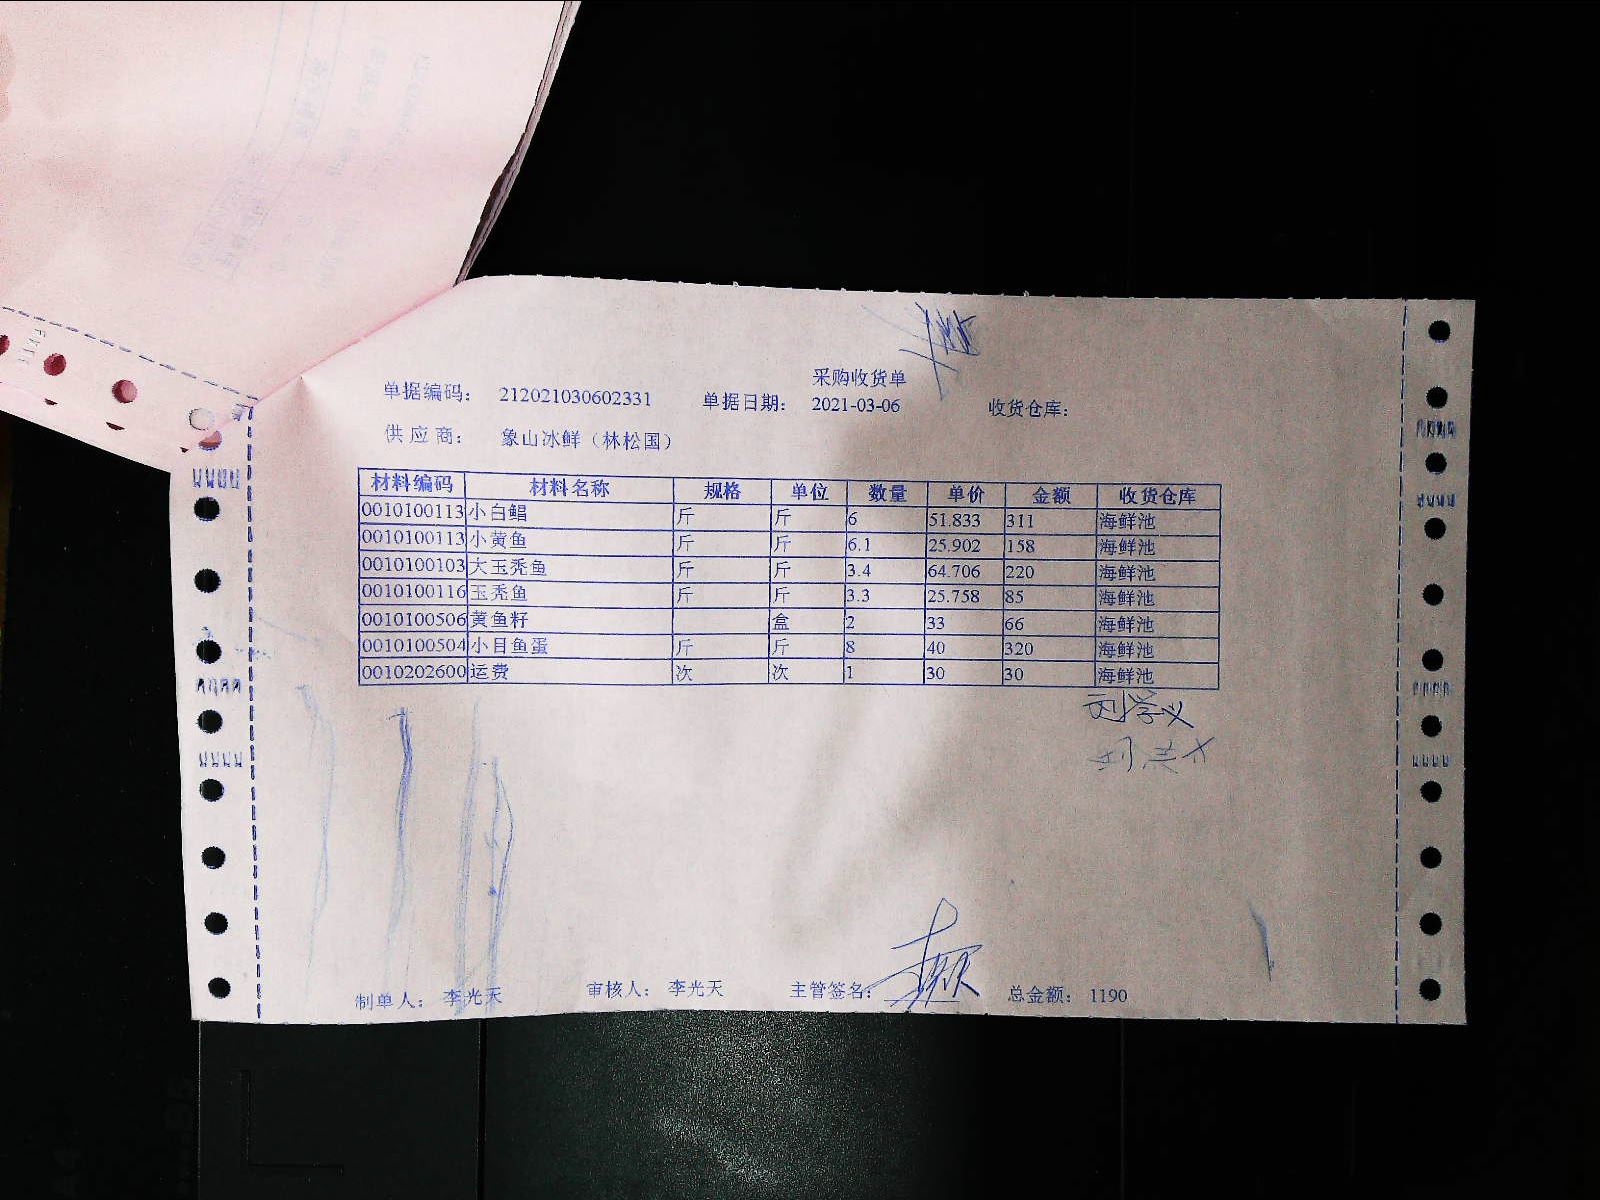 采购收货单
单据编码： 212021030602331 单据日期： 2021-03-06 收货仓库：
供应商： 象山冰鲜（林松国）
材料编码 材料名称 规格 单位 数量 单价 金额 收货仓库
0010100113 小白鲳 斤 斤 6 51.833 311 海鲜池
0010100113 小黄鱼 斤 斤 6.1 25.902 158 海鲜池
0010100103 大玉秃鱼 斤 斤 3.4 64.706 220 海鲜池
0010100116 玉秃鱼 斤 斤 3.3 25.758 85 海鲜池
0010100506 黄鱼籽 盒 2 33 66 海鲜池
0010100504 小目鱼蛋 斤 斤 8 40 320 海鲜池
0010202600 运费 次 次 1 30 30 海鲜池
制单人： 李光天 审核人： 李光天 主管签名： 总金额： 1190